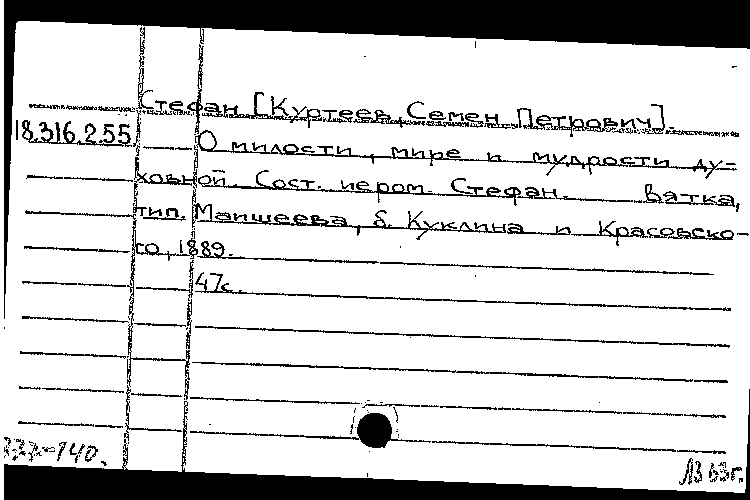 Стефан [Куртеев, Семен Петрович].
18.316.2.55
О милости, мире и мудрости ду-
ховной. Сост. иером. Стефан. Вятка,
тип. Маишеева, б. Куклина и Красовско-
го, 1889.
47с.